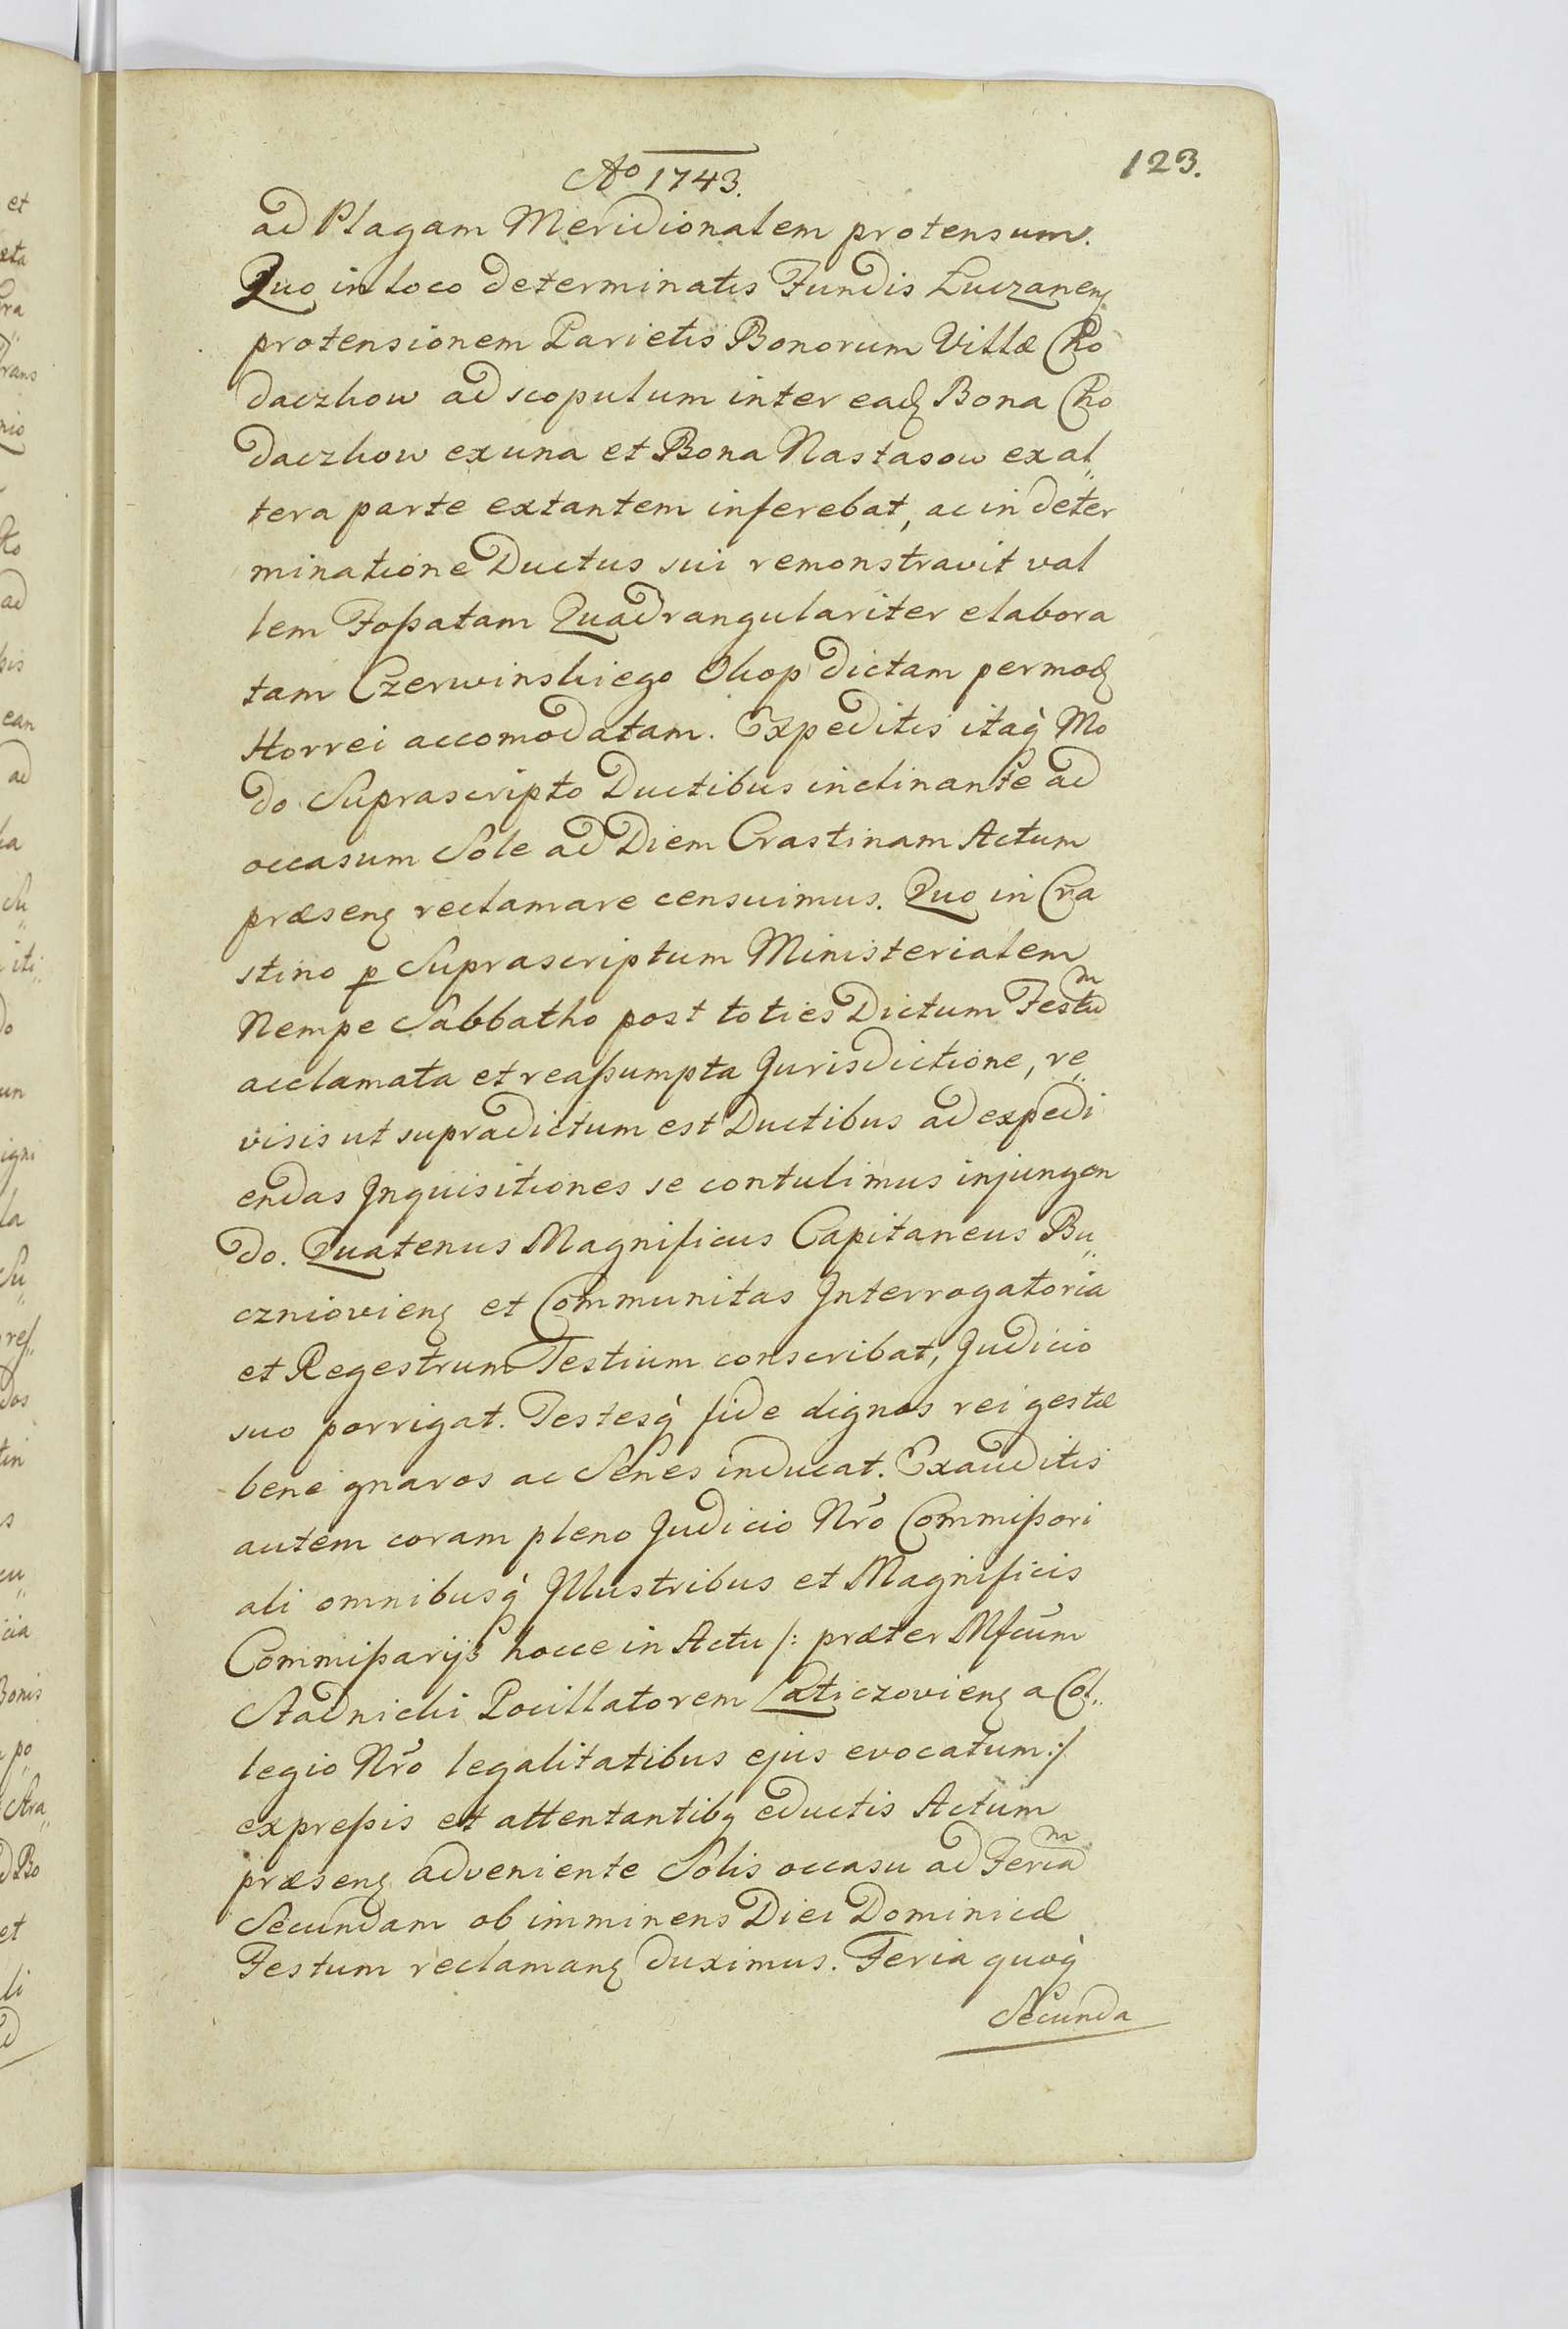 Ao 1743.
123.
ad Plagam Meridionalem protensum.
Quo in loco determinatis Fundis Luczanen̄
protensionem Parietis Bonorum Villæ Cho
daczkow ad scopulum inter ead Bona Cho
daczkow ex una et Bona Nastasow ex al„
tera parte extantem inferebat, ac in deter
minatione Ductus sui remonstravit val
lem Foßatam Quadrangulariter elabora
tam Czerwinskiego Okop dictam per mod
Horrei accomodatam. Expeditis itaq̀ Mo
do Suprascripto Ductibus inclinante ad
occasum Sole ad Diem Crastinam Actum
præsen reclamare censuimus. Quo in Cra
stino p Suprascriptum Ministerialem
Nempe Sabbatho post toties Dictum Festuᵐ
acclamata et reaßumpta Jurisdictione, re„
visis ut supradictum est Ductibus ad expedi
endas Jnquisitiones se contulimus injungen
do. Quatenus Magnificus Capitaneus Bu„
czniovien et Communitas Jnterrogatoria
et Regestrum Testium conscribat, Judicio
suo porrigat. Testesq̀ fide dignos rei gestæ
bene gnaros ac Senes inducat. Exauditis
autem coram pleno Judicio Nr̃o Commißori
ali omnibusq̀ Jllustribus et Magnificis
Commißarijs hocce in Actu /: præter Mfcum
Stadnicki Pocillatorem Laticzovien a Col„
legio Nr̃o legalitatibus ejus evocatum :/
expreßis et attentantibq eductis Actum
præsen adveniente Solis occasu ad Feriaᵐ
Secundam ob imminens Diei Dominicæ
Festum reclaman duximus. Feria quoq̀
Secunda